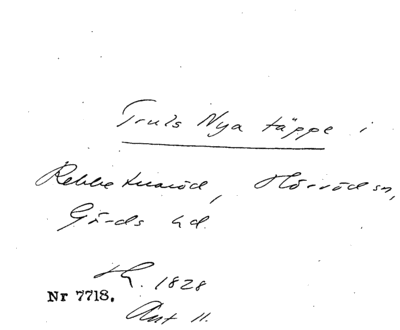 Truls Nya täppe i
Rebbetuaröd, Hörröd sn,
Gärds hd.
Th. 1828
Nr 7718.
Ant 11.